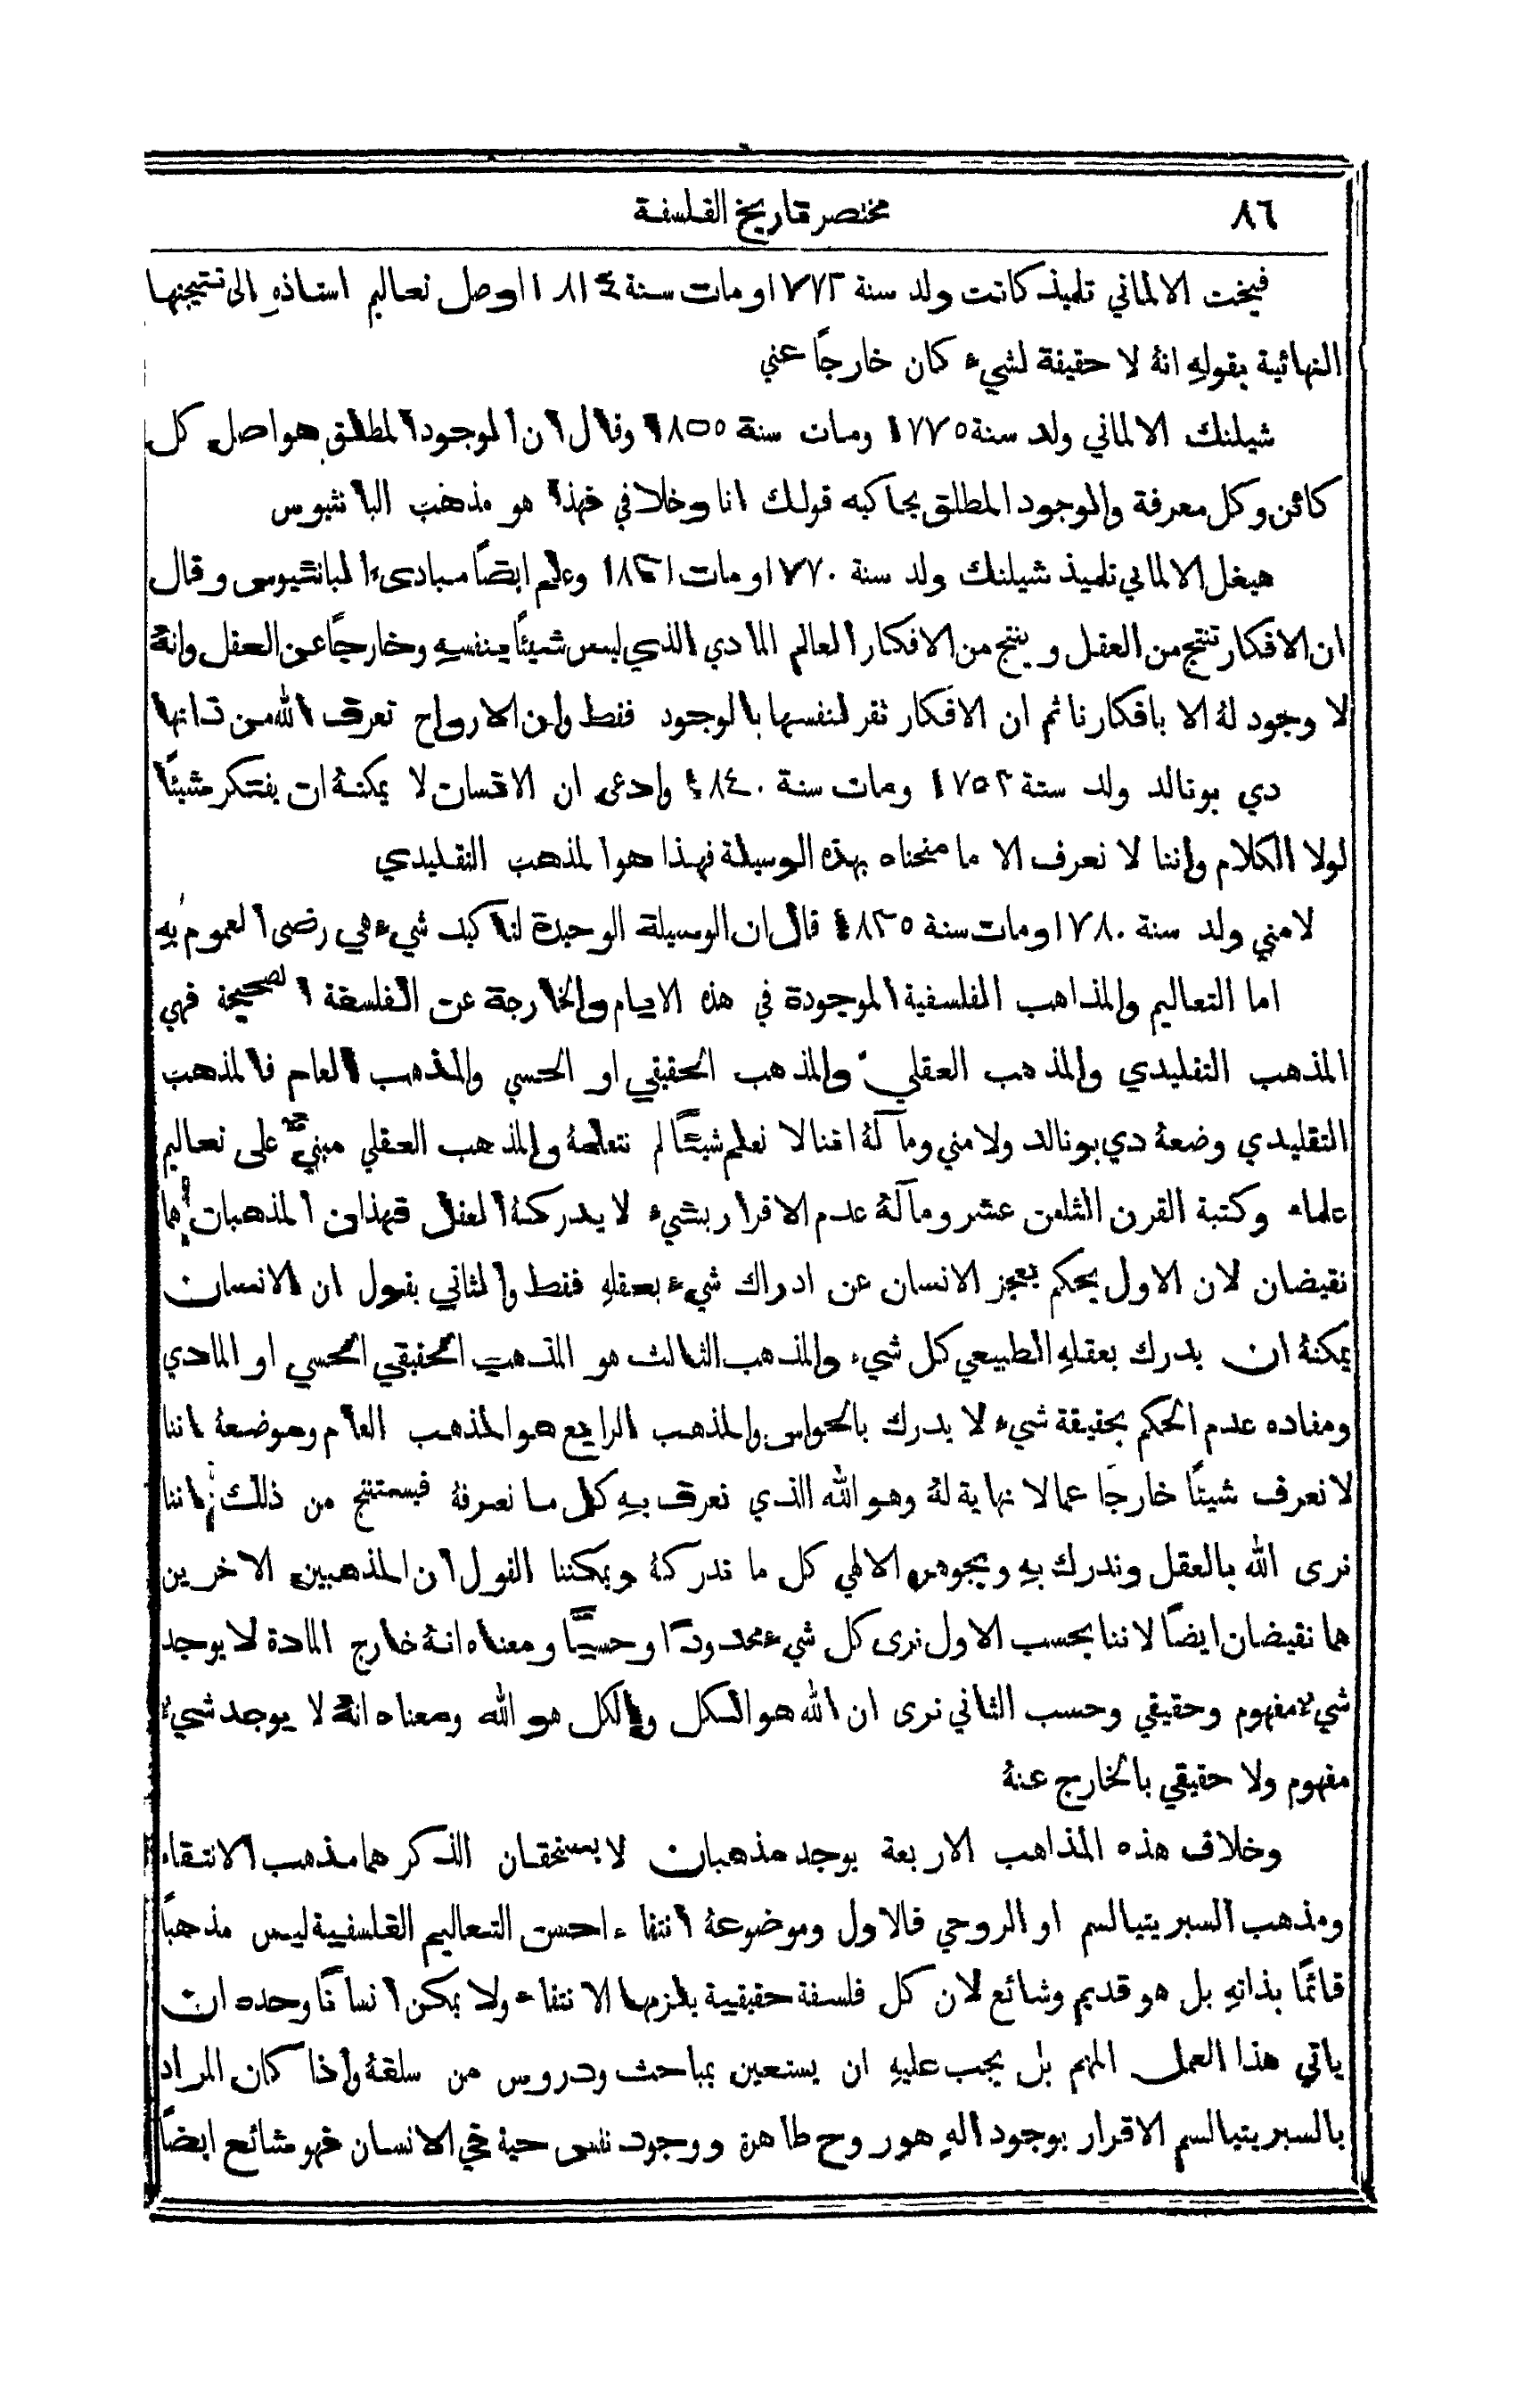 ٨٦ مختصر تاريخ الفلسفة
فيخت الالماني تلميذ كانت ولد سنة ١٧٧٢ ومات سنة ١٨١٤ اوصل تعاليم استاذهِ الى نتيجتها
النهائية بقولهِ انهُ لا حقيقة لشيء كان خارجًا عني
شيلنك الالماني ولد سنة ١٧٧٥ ومات سنة ١٨٥٥ وقال ان الموجود المطلق هو اصل كل
كائن وكل معرفة والموجود المطلق يحاكيه قولك انا وخلافي فهذا هو مذهب البانثيوس
هيغل الالماني تلميذ شيلنك ولد سنة ١٧٧٠ ومات ١٨٣١ وعلم ايضًا مبادىء البانثيوس وقال
ان الافكار تنتج من العقل وينتج من الافكار العالم المادي الذي ليس شيئًا بنفسهِ وخارجًا عن العقل وانهُ
لا وجود لهُ الا بافكارنا ثم ان الافكار تقر لنفسها بالوجود فقط وان الارواح تعرف الله من ذاتها
دي بونالد ولد سنة ١٧٥٢ ومات سنة ١٨٤٠ وادعى ان الانسان لا يمكنهُ ان يفتكر شيئًا
لولا الكلام واننا لا نعرف الا ما منحناه بهذه الوسيلة فهذا هو المذهب التقليدي
لامني ولد سنة ١٧٨٠ ومات سنة ١٨٣٥ قال ان الوسيلة الوحيدة لتاكيد شيء هي رضى العموم بهِ
اما التعاليم والمذاهب الفلسفية الموجودة في هذه الايام والخارجة عن الفلسفة الصحيحة فهي
المذهب التقليدي والمذهب العقلي والمذهب الحقيقي او الحسي والمذهب العام فالمذهب
التقليدي وضعهُ دي بونالد ولامني ومآلهُ اننا لا نعلم شيئًا لم نتعلمهُ والمذهب العقلي مبنيٌّ على تعاليم
علماء وكتبة القرن الثامن عشر ومآلهُ عدم الاقرار بشيء لا يدركهُ العقل فهذان المذهبان هما
نقيضان لان الاول يحكم بعجز الانسان عن ادراك شيء بعقلهِ فقط والثاني يقول ان الانسان
يمكنهُ ان يدرك بعقلهِ الطبيعي كل شيء والمذهب الثالث هو المذهب الحقيقي الحسي او المادي
ومفاده عدم الحكم بحقيقة شيء لا يدرك بالحواس والمذهب الرابع هو المذهب العام وموضعهُ اننا
لا نعرف شيئًا خارجًا عما لا نهاية لهُ وهو الله الذي نعرف بهِ كل ما نعرفهُ فيستنتج من ذلك اننا
نرى الله بالعقل وندرك بهِ وبجوهره الالهي كل ما ندركهُ ويمكننا القول ان المذهبين الاخرين
هما نقيضان ايضًا لاننا بحسب الاول نرى كل شيء محدودًا وحسيًّا ومعناه انهُ خارج المادة لا يوجد
شيءٌ مفهوم وحقيقي وحسب الثاني نرى ان الله هو الكل والكل هو الله ومعناه انهُ لا يوجد شيءٌ
مفهوم ولا حقيقي بالخارج عنهُ
وخلاف هذه المذاهب الاربعة يوجد مذهبان لا يستحقان الذكر هما مذهب الانتقاء
ومذهب السبريتيالسم او الروحي فالاول وموضوعهُ انتقاء احسن التعاليم الفلسفية ليس مذهبًا
قائمًا بذاتهِ بل هو قديم وشائع لان كل فلسفة حقيقية يلزمها الانتقاء ولا يمكن انسانًا وحده ان
ياتي هذا العمل المهم بل يجب عليهِ ان يستعين بمباحث ودروس من سلفهُ واذا كان المراد
بالسبريتيالسم الاقرار بوجود الهٍ هو روح طاهرة ووجود نفس حية في الانسان فهو شائع ايضًا